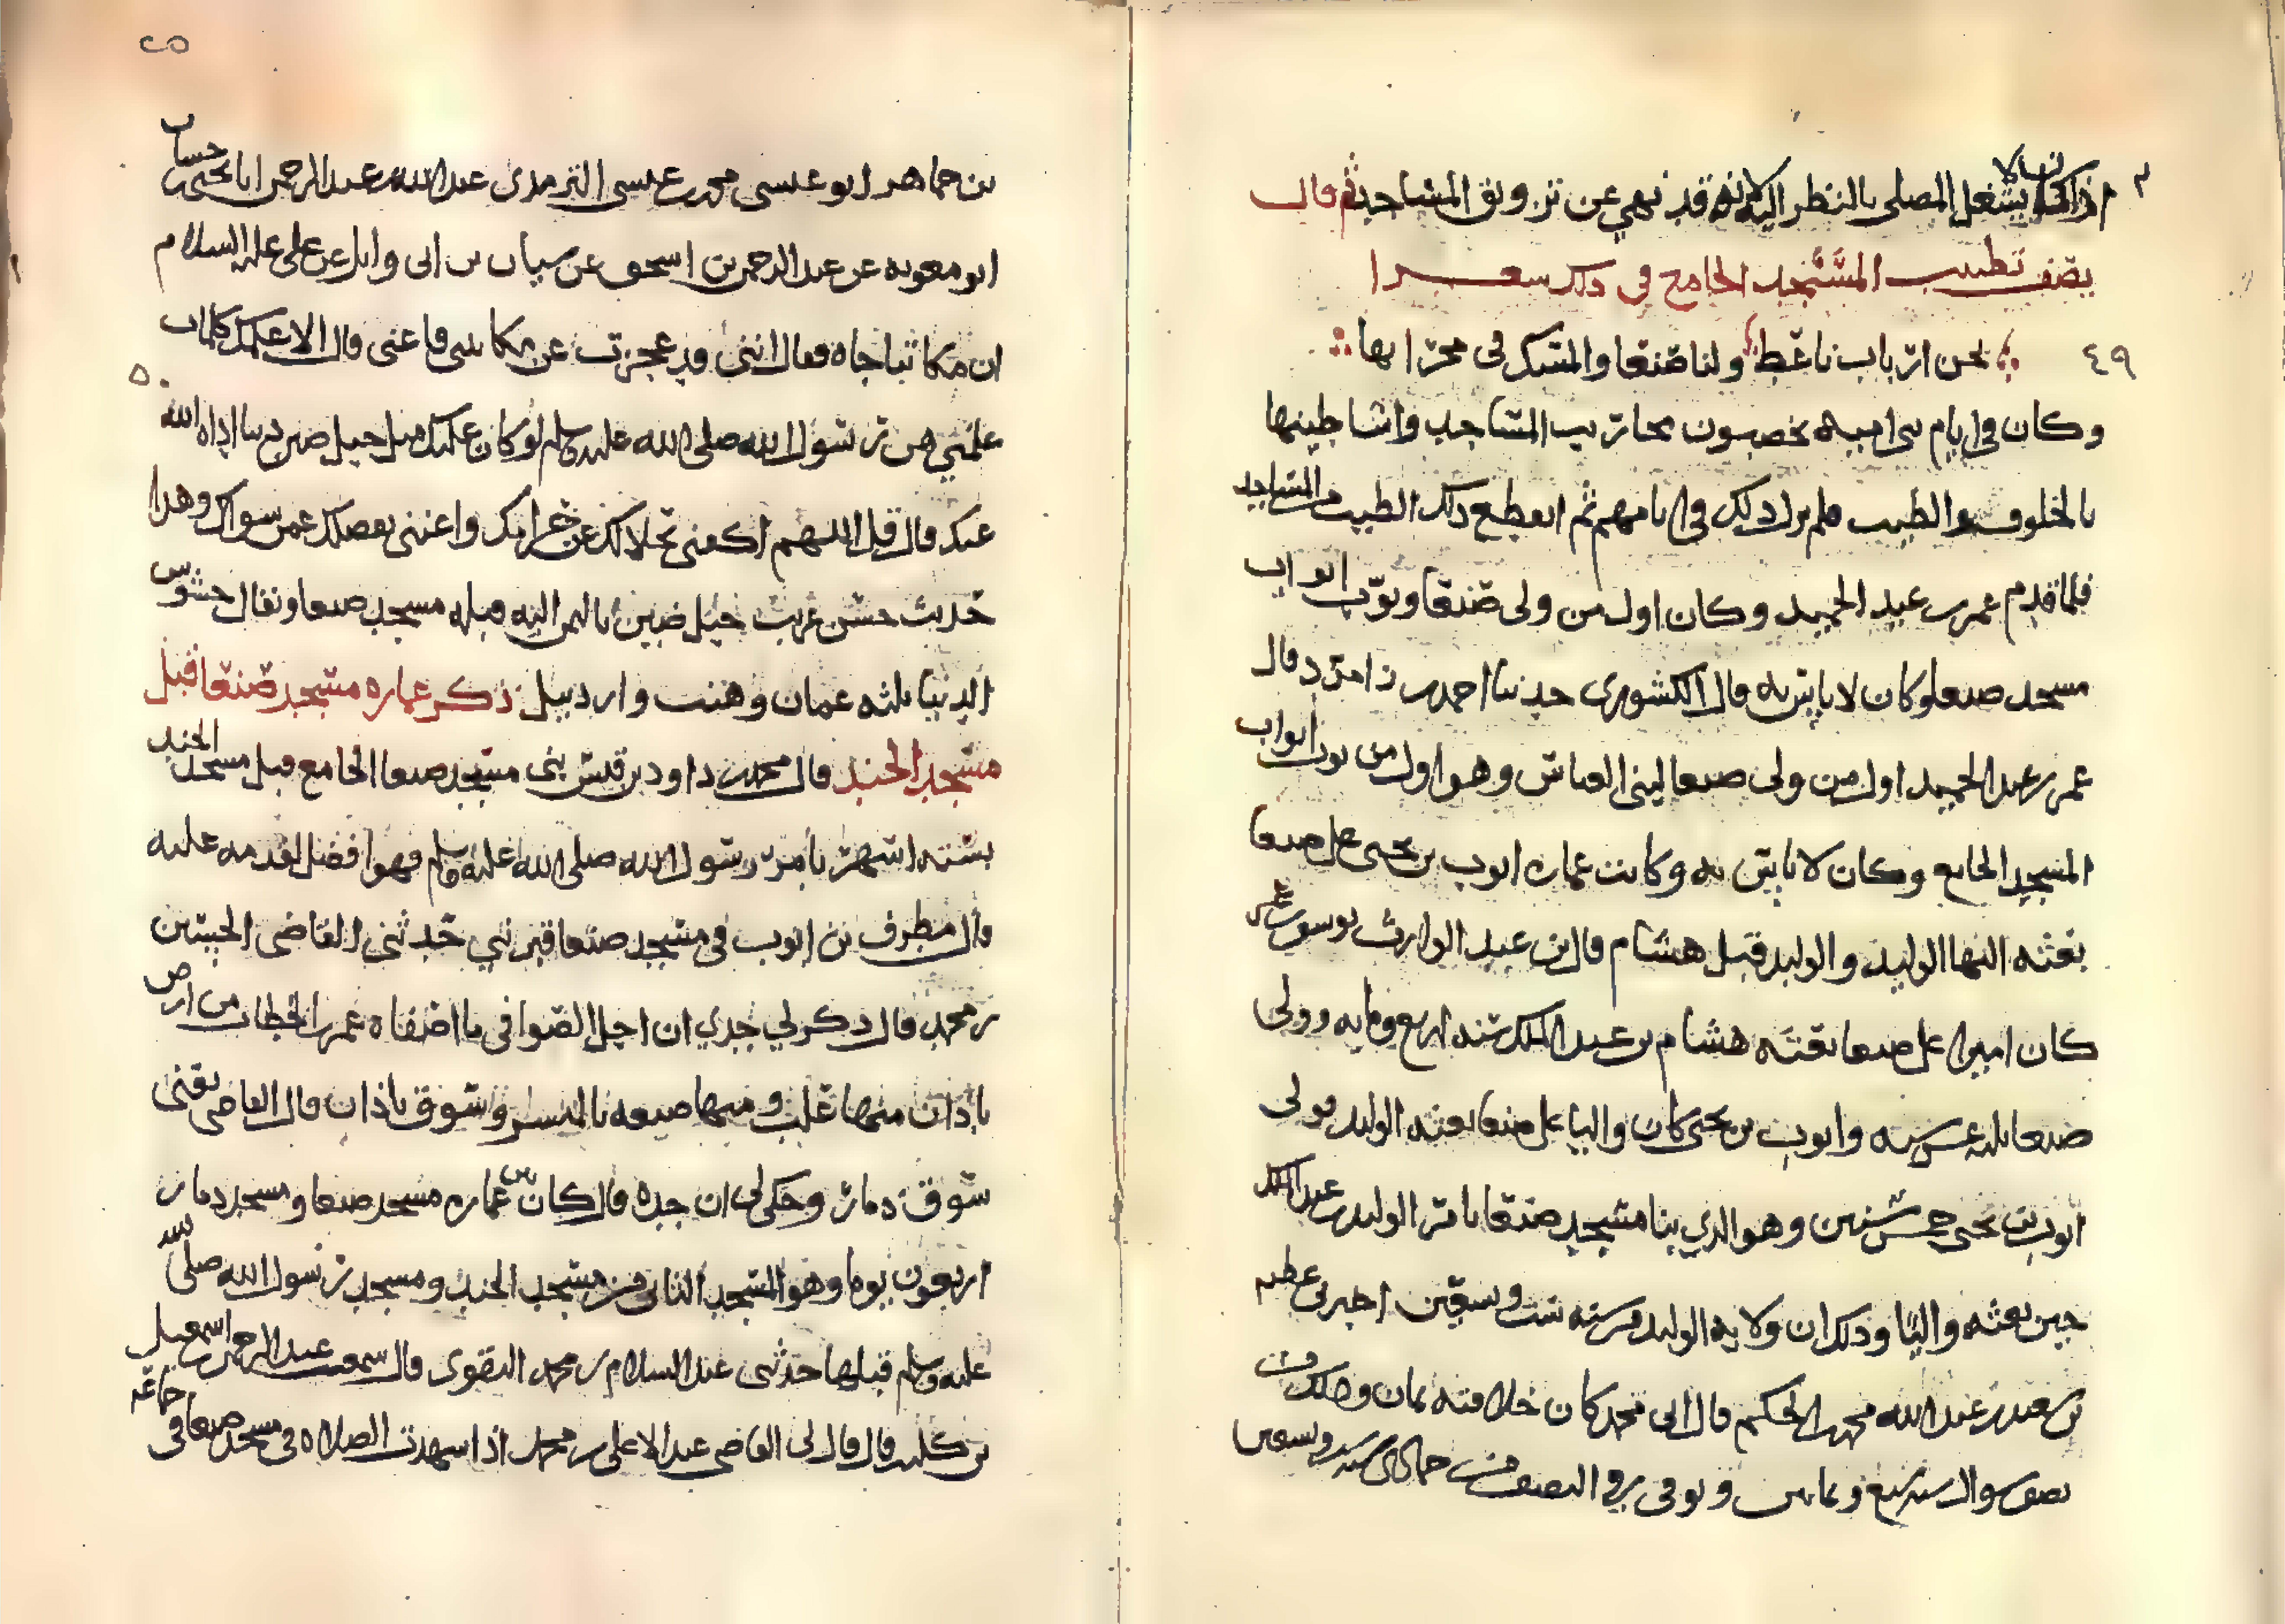 اذا كان لا يشغل المصلي بالنظر اليه لانه قد نهي عن تزويق المساجد ثم قال
يصف تطييب المسجد الجامع في ذلك شعرا
٤٩ نحن ارباب ناعط ولنا صنعا والمسك في محرابها
وكان في ايام بني اميه يخصون محاريب المساجد واساطينها
بالخلوق والطيب فلم يزل ذلك في ايامهم ثم انقطع ذلك الطيب من المساجد
فلما قدم عمر بن عبد الحميد وكان اول من ولي صنعا وبوب ابواب
مسجد صنعا وكان لا باس به قال الكشوري حدثنا احمد بن قال
عمر بن عبد الحميد اول من ولي صنعا لبني العباس وهو اول من بوب ابواب
المسجد الجامع وكان لا باس به وكانت عماره ايوب بن يحيى على صنعا
بعثه اليها الوليد والوليد قبل هشام قال بن عبد الوارث يوسف بن عمر
كان اميرا على صنعا بعثه هشام بن عبد الملك سنه اربع ومايه وولي
صنعا ثلث عشر سنه وايوب بن يحيى كان واليا على صنعا بعثه الوليد فولي
ايوب بن يحيى خمس سنين وهو الذي بنا مسجد صنعا بامر الوليد بن عبد الملك
حين بعثه واليا وذلك ان ولايه الوليد من سنه ست وسبعين اخبرني عطيه
بن سعيد بن عبد الله بن محمد بن الحكم قال ابي محمد كان خلافته ثمان وملك في
نصف شوال سنه سبع وثمانين وتوفي في النصف من جمادى سنه وتسعين
بن جماهر ابو عيسى محمد بن عيسى الترمذي عبد الله بن عبد الرحمن انا يحيى بن حسان
ابو معويه عن عبد الرحمن بن اسحق عن سيار عن ابي وايل عن علي عليه السلام
ان مكاتبا جاه فقال انني قد عجزت عن مكاتبتي فاعني قال الا اعلمك كلمات
علمنيهن رسول الله صلى الله عليه وسلم لو كان عليك مثل جبل ضين دينا اداه الله
عنك قال قل اللهم اكفني بحلالك عن حرامك واغنني بفضلك عمن سواك وهذا
حديث حسن غريب جبل ضين باليمن اليه قبله مسجد صنعا ويقال حشوش
الدنيا ثلثه عمان وهنت واردبيل ذكر عماره مسجد صنعا قبل
مسجد الجند قال محمد بن داود بن قيس بني مسجد صنعا الجامع قبل مسجد الجند
بستة اشهر بامر رسول الله صلى الله عليه وسلم فهو افضل لقدمه عليه
قال مطرف بن ايوب في مسجد صنعا قبر نبي حدثني القاضي الحسين
بن محمد قال ذكر لي جدي ان اجل الصوافي ما اصفاه عمر بن الخطاب من ارض
باذان منها غلب ومنها ضيعه بالمنسر وسوق باذان قال القاضي يعني
سوق ذمار وحكى لي ان جده قال كان بين عماره مسجد صنعا ومسجد ذمار
اربعون يوما وهو المسجد الثاني من مسجد الجند ومسجد رسول الله صلى الله
عليه وسلم قبلها حدثني عبد السلام بن محمد النقوي قال سمعت عبد الرحمن بن اسمعيل
بن كليب قال قال لي القاضي عبد الاعلى بن محمد اذا شهدت الصلاه في مسجد صنعا في جماعه